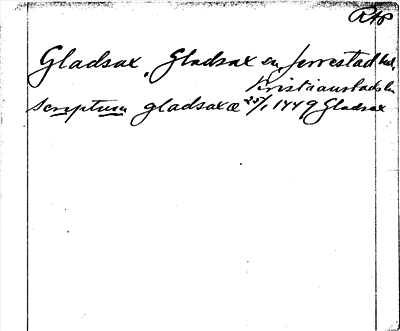 RAp
Gladsax, Gladsax sn, Jerrestad hd,
Kristianstads ln
Scriptum gladsaxæ 25/1 1449 Gladsax